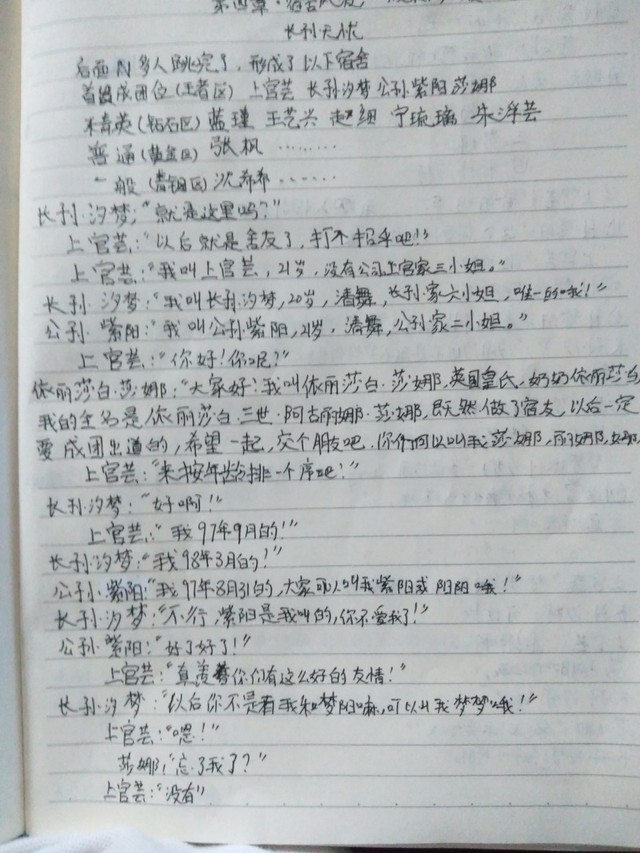 第四章·宿舍
长孙无忧
后面N多人跳完了,形成了以下宿舍
首级成团位(王者区) 上官芸 长孙汐梦 公孙紫阳 莎娜
木青英(钻石区) 蓝瑾 王艺兴 赵 宁琉璃 朱泽芸
普通(黄金区) 张枫 ………
一般(青铜区) 沈希希……
长孙·汐梦:“就是这里吗?”
上官芸:“以后就是舍友了,打个招乎吧!”
上官芸:“我叫上官芸,21岁,没有公司上官家三小姐。”
长孙·汐梦:“我叫长孙汐梦,20岁,清舞,长孙家六小姐,唯一的哦!”
公孙·紫阳:“我叫公孙紫阳,21岁,清舞,公孙家二小姐。”
上官芸:“你好!你呢?”
依丽莎白·莎娜:“大家好!我叫依丽莎白·莎娜,英国皇氏,奶奶依丽莎白
我的全名是依丽莎白·三世·阿古丽娜·莎娜,既然做了宿友,以后一定
要成团出道的,希望一起,交个朋友吧.你们可以叫我莎娜,丽娜,娜娜
上官芸:“来按年龄排一个序吧!”
长孙汐梦:“好啊!”
上官芸:“我97年9月的!”
长孙汐梦:“我98年3月的!”
公孙·紫阳:“我97年8月31的,大家可以叫我紫阳或阳阳哦!”
长孙·汐梦:“不行,紫阳是我叫的,你不爱我了!”
公孙·紫阳:“好了好了!”
上官芸:“真羡慕你们有这么好的友情!”
长孙·汐梦:“以后你不是有我和梦阳嘛,可以叫我梦梦哦!”
上官芸:“嗯!”
莎娜:“忘了我了?”
上官芸:“没有”